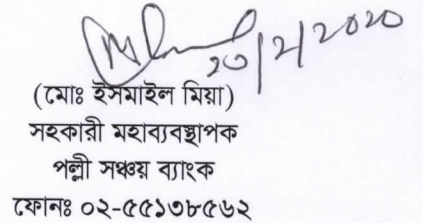 ২৩/২/২০২০
(মোঃ ইসমাইল মিয়া)
সহকারী মহাব্যবস্থাপক
পল্লী সঞ্চয় ব্যাংক
ফোনঃ ০২-৫৫১৩৮৫৬২